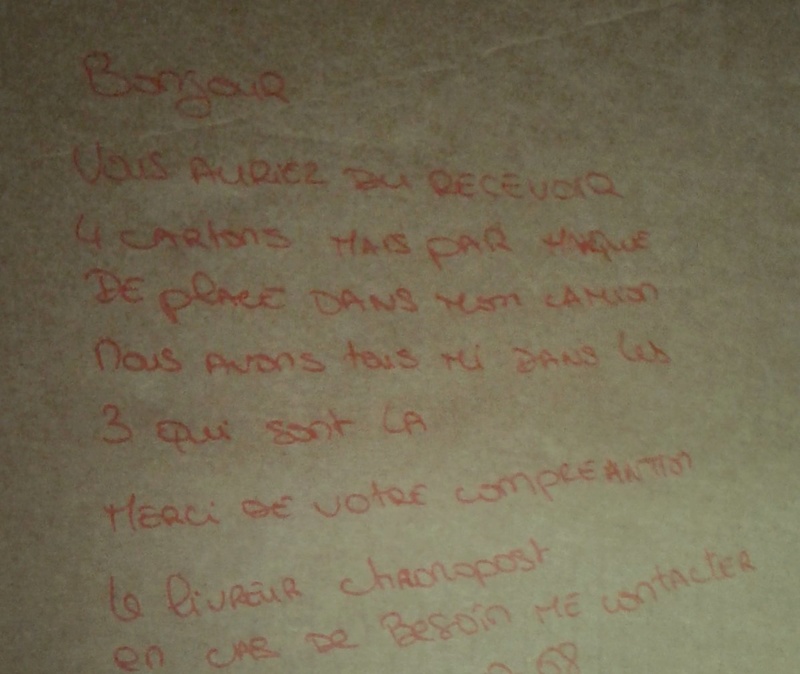 Bonjour
VOUS AURIEZ DU RECEVOIR
4 CARTONS MAIS PAR MNQUE
DE PLACE DANS MON CAMION
NOUS AVONS TOUS MI DANS LES
3 QUI SONT LA
MERCI DE VOTRE COMPREANTION
LE LIVREUR CHRONOPOST
EN CAS DE BESOIN ME CONTACTER